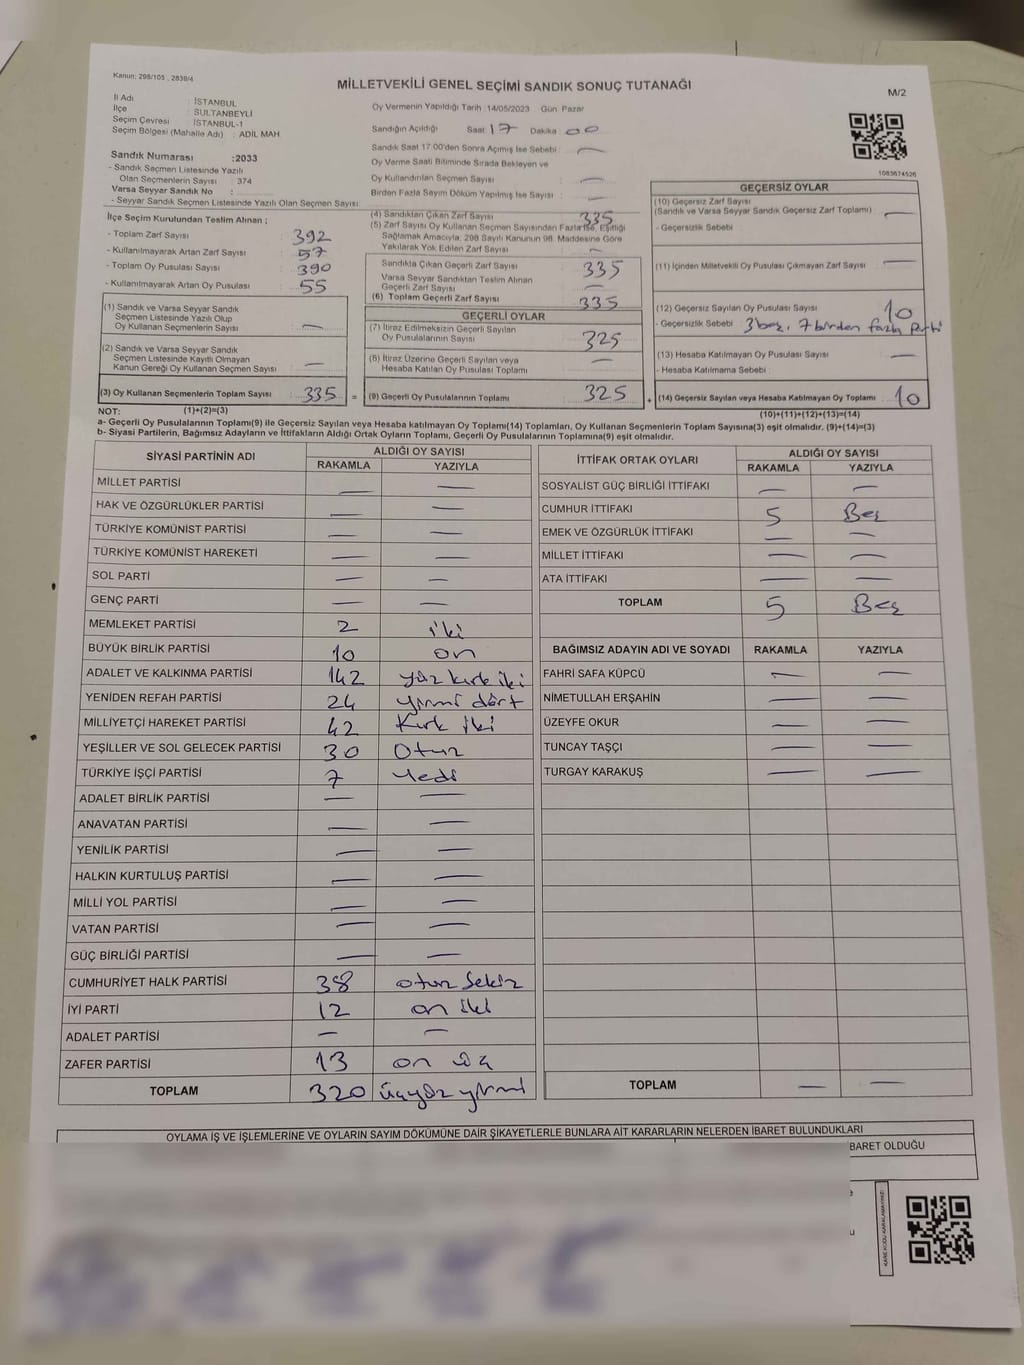 Kanun: 298/105 , 2839/4
MİLLETVEKİLİ GENEL SEÇİMİ SANDIK SONUÇ TUTANAĞI
M/2
İl Adı : İSTANBUL
İlçe : SULTANBEYLİ
Seçim Çevresi : İSTANBUL-1
Seçim Bölgesi (Mahalle Adı) : ADİL MAH
Sandık Numarası :2033
- Sandık Seçmen Listesinde Yazılı
Olan Seçmenlerin Sayısı : 374
Varsa Seyyar Sandık No :
- Seyyar Sandık Seçmen Listesinde Yazılı Olan Seçmen Sayısı:
Oy Vermenin Yapıldığı Tarih :14/05/2023 Gün Pazar
Sandığın Açıldığı Saat 17 Dakika 00
Sandık Saat 17:00'den Sonra Açımış İse Sebebi : —
Oy Verme Saati Bitiminde Sırada Bekleyen ve
Oy Kullandırılan Seçmen Sayısı : —
Birden Fazla Sayım Döküm Yapılmış İse Sayısı : —
1083674526
İlçe Seçim Kurulundan Teslim Alınan ;
- Toplam Zarf Sayısı : 392
- Kullanılmayarak Artan Zarf Sayısı : 57
- Toplam Oy Pusulası Sayısı : 390
- Kullanılmayarak Artan Oy Pusulası : 55
(1) Sandık ve Varsa Seyyar Sandık
Seçmen Listesinde Yazılı Olup
Oy Kullanan Seçmenlerin Sayısı : —
(2) Sandık ve Varsa Seyyar Sandık
Seçmen Listesinde Kayıtlı Olmayan
Kanun Gereği Oy Kullanan Seçmen Sayısı : —
(3) Oy Kullanan Seçmenlerin Toplam Sayısı : 335 =
(4) Sandıktan Çıkan Zarf Sayısı : 335
(5) Zarf Sayısı Oy Kullanan Seçmen Sayısından Fazla İse, Eşitliği
Sağlamak Amacıyla, 298 Sayılı Kanunun 98. Maddesine Göre
Yakılarak Yok Edilen Zarf Sayısı : —
Sandıkta Çıkan Geçerli Zarf Sayısı : 335
Varsa Seyyar Sandıktan Teslim Alınan
Geçerli Zarf Sayısı : —
(6) Toplam Geçerli Zarf Sayısı : 335
GEÇERLİ OYLAR
(7) İtiraz Edilmeksizin Geçerli Sayılan
Oy Pusulalarının Sayısı : 325
(8) İtiraz Üzerine Geçerli Sayılan veya
Hesaba Katılan Oy Pusulası Toplamı : —
(9) Geçerli Oy Pusulalarının Toplamı : 325 +
GEÇERSİZ OYLAR
(10) Geçersiz Zarf Sayısı
(Sandık ve Varsa Seyyar Sandık Geçersiz Zarf Toplamı) : —
- Geçersizlik Sebebi :
(11) İçinden Milletvekili Oy Pusulası Çıkmayan Zarf Sayısı : —
(12) Geçersiz Sayılan Oy Pusulası Sayısı : 10
- Geçersizlik Sebebi : 3 boş, 7 birden fazla parti
(13) Hesaba Katılmayan Oy Pusulası Sayısı : —
- Hesaba Katılmama Sebebi :
(14) Geçersiz Sayılan veya Hesaba Katılmayan Oy Toplamı : 10
NOT: (1)+(2)=(3) (10)+(11)+(12)+(13)=(14)
a- Geçerli Oy Pusulalarının Toplamı(9) ile Geçersiz Sayılan veya Hesaba katılmayan Oy Toplamı(14) Toplamları, Oy Kullanan Seçmenlerin Toplam Sayısına(3) eşit olmalıdır. (9)+(14)=(3)
b- Siyasi Partilerin, Bağımsız Adayların ve İttifakların Aldığı Ortak Oyların Toplamı, Geçerli Oy Pusulalarının Toplamına(9) eşit olmalıdır.
SİYASİ PARTİNİN ADI ALDIĞI OY SAYISI
RAKAMLA YAZIYLA
MİLLET PARTİSİ — —
HAK VE ÖZGÜRLÜKLER PARTİSİ — —
TÜRKİYE KOMÜNİST PARTİSİ — —
TÜRKİYE KOMÜNİST HAREKETİ — —
SOL PARTİ — —
GENÇ PARTİ — —
MEMLEKET PARTİSİ 2 iki
BÜYÜK BİRLİK PARTİSİ 10 on
ADALET VE KALKINMA PARTİSİ 142 yüz kırk iki
YENİDEN REFAH PARTİSİ 24 yirmi dört
MİLLİYETÇİ HAREKET PARTİSİ 42 Kırk iki
YEŞİLLER VE SOL GELECEK PARTİSİ 30 Otuz
TÜRKİYE İŞÇİ PARTİSİ 7 Yedi
ADALET BİRLİK PARTİSİ — —
ANAVATAN PARTİSİ — —
YENİLİK PARTİSİ — —
HALKIN KURTULUŞ PARTİSİ — —
MİLLİ YOL PARTİSİ — —
VATAN PARTİSİ — —
GÜÇ BİRLİĞİ PARTİSİ — —
CUMHURİYET HALK PARTİSİ 38 otuz sekiz
İYİ PARTİ 12 on iki
ADALET PARTİSİ — —
ZAFER PARTİSİ 13 on üç
TOPLAM 320 üçyüz yirmi
İTTİFAK ORTAK OYLARI ALDIĞI OY SAYISI
RAKAMLA YAZIYLA
SOSYALİST GÜÇ BİRLİĞİ İTTİFAKI — —
CUMHUR İTTİFAKI 5 Beş
EMEK VE ÖZGÜRLÜK İTTİFAKI — —
MİLLET İTTİFAKI — —
ATA İTTİFAKI — —
TOPLAM 5 Beş
BAĞIMSIZ ADAYIN ADI VE SOYADI RAKAMLA YAZIYLA
FAHRİ SAFA KÜPCÜ — —
NİMETULLAH ERŞAHİN — —
ÜZEYFE OKUR — —
TUNCAY TAŞÇI — —
TURGAY KARAKUŞ — —
TOPLAM — —
OYLAMA İŞ VE İŞLEMLERİNE VE OYLARIN SAYIM DÖKÜMÜNE DAİR ŞİKAYETLERLE BUNLARA AİT KARARLARIN NELERDEN İBARET BULUNDUKLARI
BARET OLDUĞU
KARE KODU KARALAMAYINIZ!